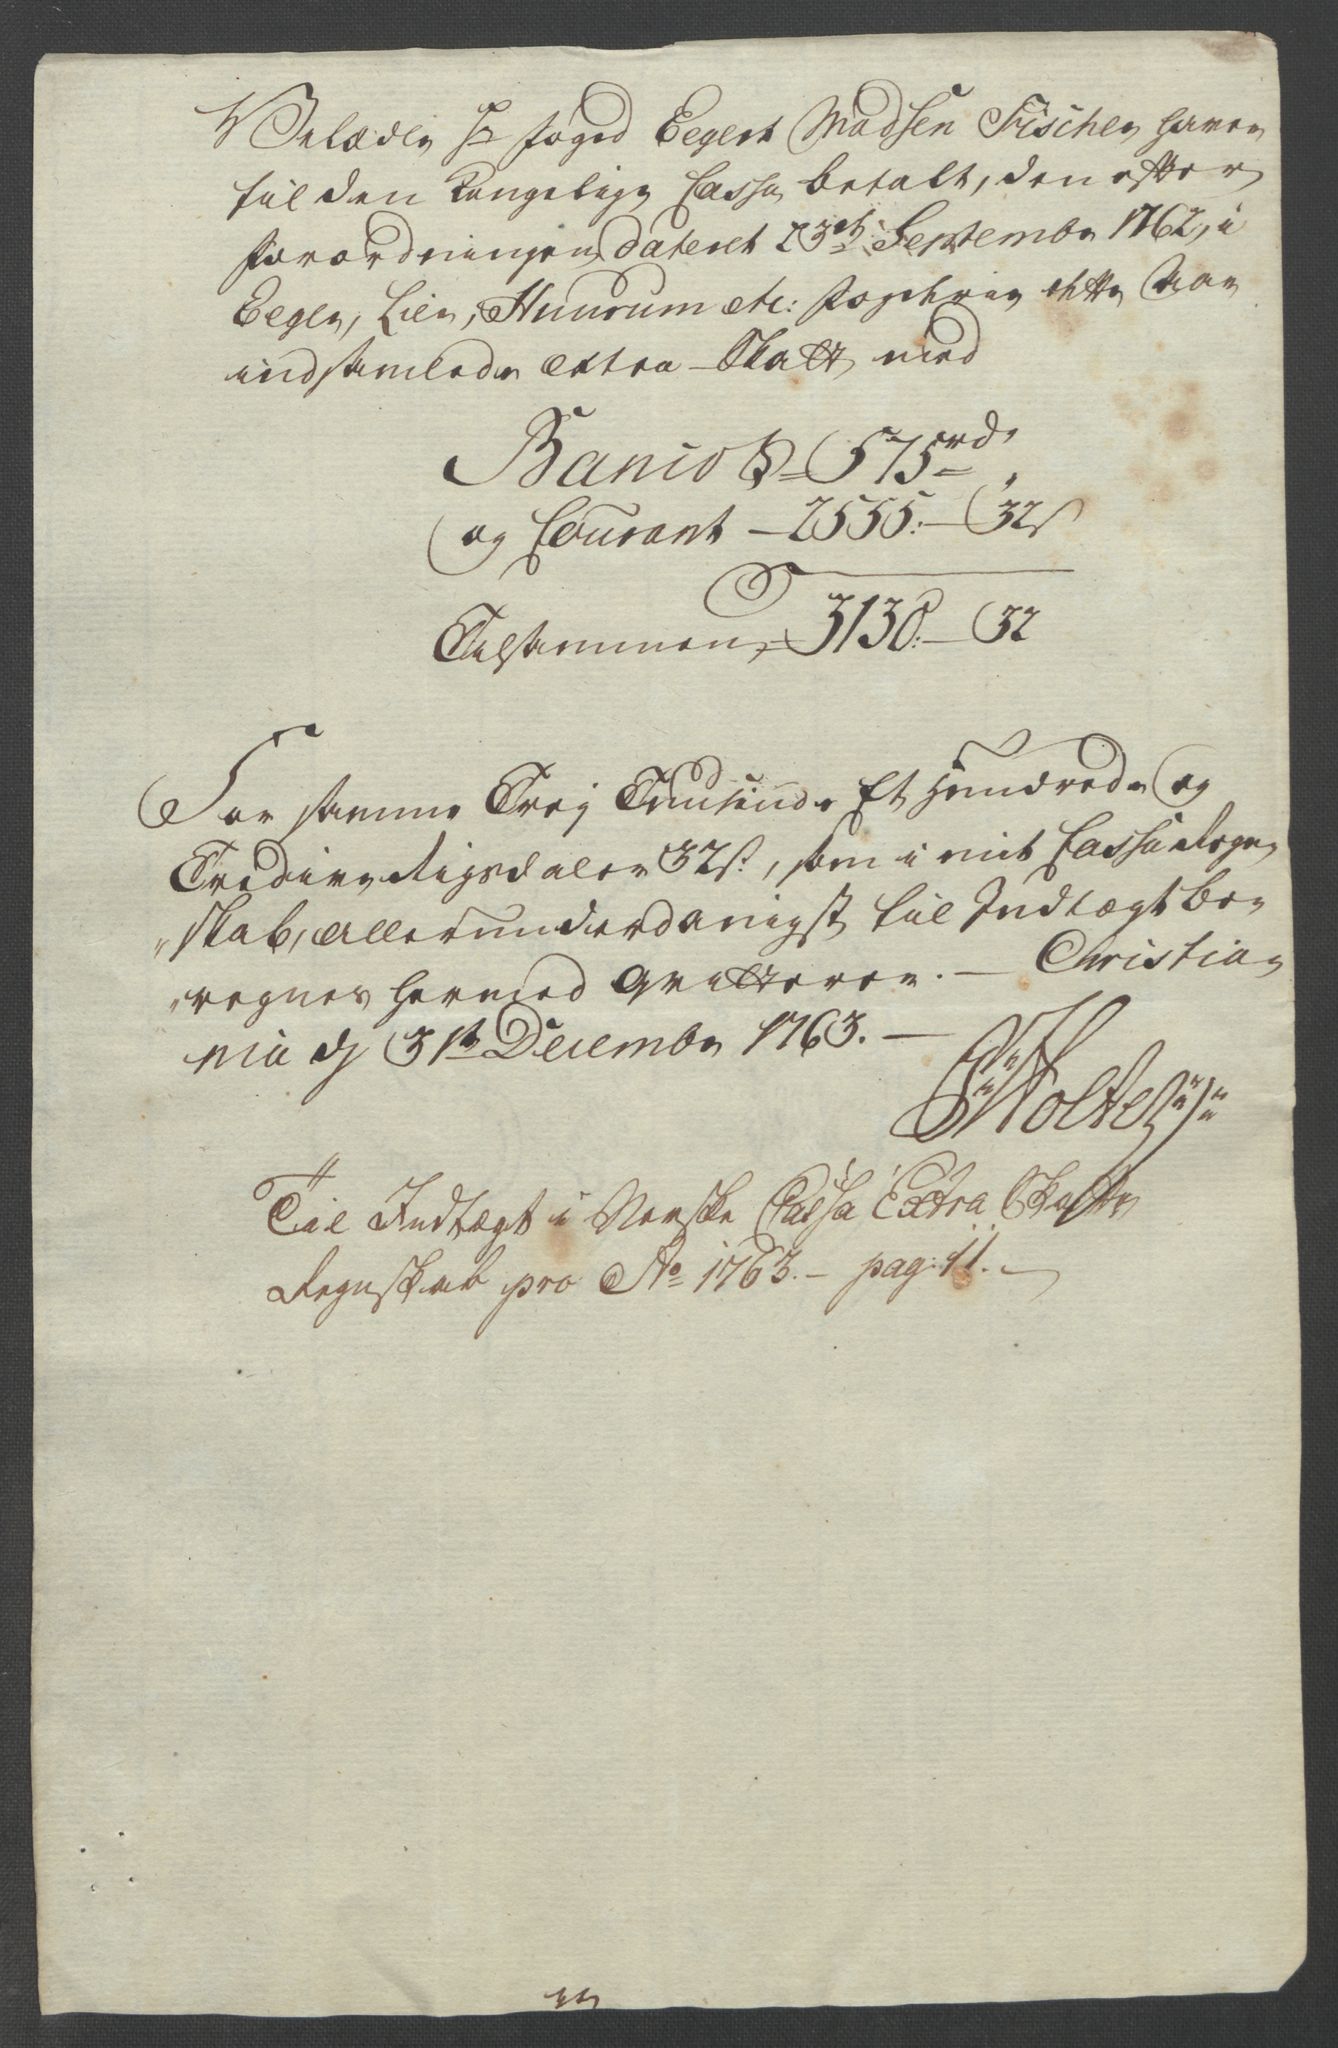 Velædle Hr Foged Eegert Madsen Fischer haver
til den Kongelige Cassa betalt, den efter
forordningen dateret 23de Septembr 1762, i
Eeger, Lier, Huurum etc: fogderie dette Aar
indsamlede Extra Skatt med
Banco S 575 rdr
og Courant – 2555: – 32 s
Tilsammen – 3130: – 32
For samme Trej Tuusinde Et Hundrede og
Tredive Rigsdaler 32 s:, som i mit Cassa Regn,,
,,skab, allerunderdanigst til Indtægt be,,
,,regnes hermed qvitterer. – Christia,,
nia d 31te Decembr 1763. –
Holter
Til Indtægt i Norske Cassa Extra Skatte
Regnskab pro Ao 1763. – pag: 11. –